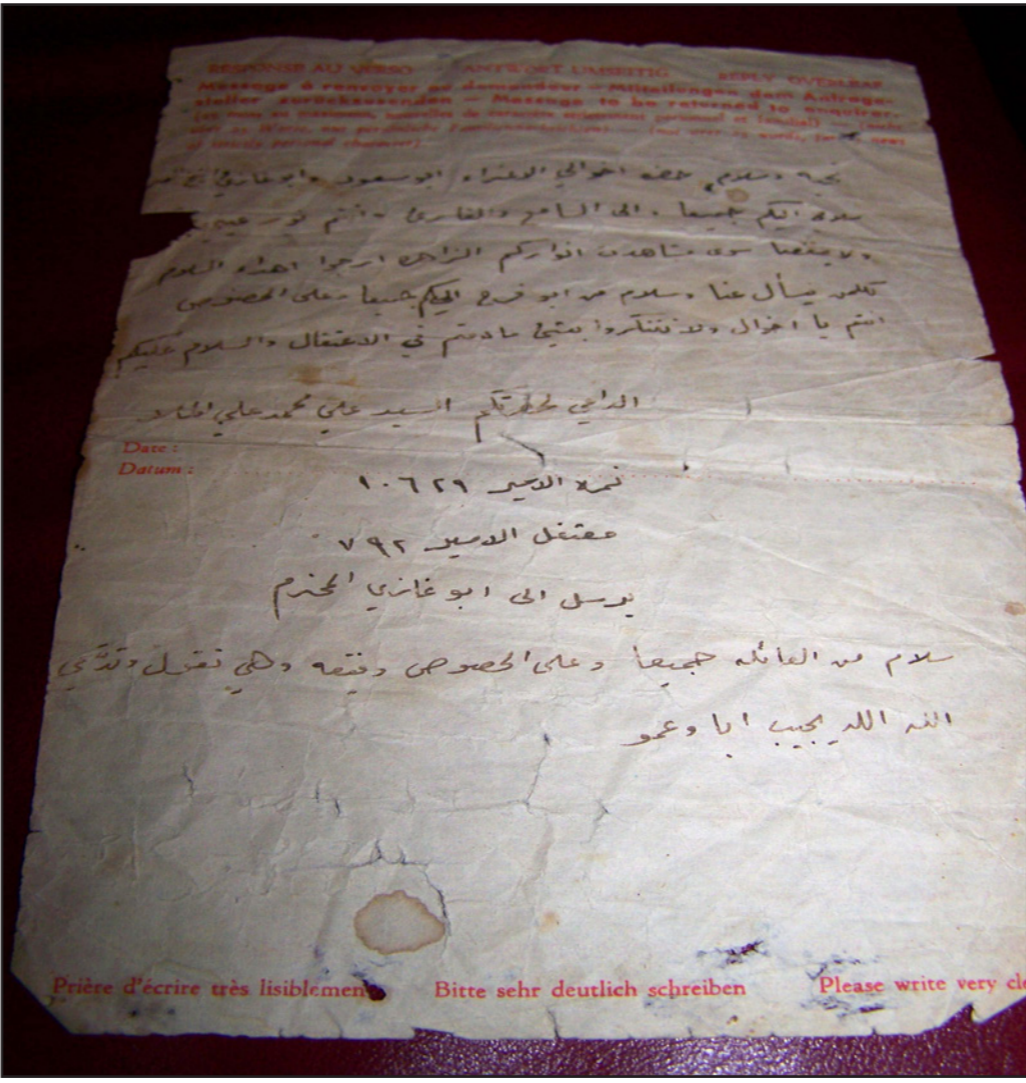 RESPONSE AU VERSO ANTWORT UMSEITIG REPLY OVERLEAF
Message à renvoyer au demandeur — Mitteilungen dem Anfrage-
steller zurückzusenden — Message to be returned to enquirer.
تحية وسلام حضرة اخوالي الاعزاء ابو سعود وابو غازي
سلامي اليكم جميعا والى السامع والقارئ وانتم نور عيني
ولا ينقصنا سوى مشاهدت انواركم الزاهرة ارجوا اهداء السلام
لكلمن يسأل عنا وسلام من ابو فرج اليكم جميعا وعلى الخصوص
انتم يا اخوالي ولا تفتكروا بشيئ مادمتم في الاعتقال والسلام عليكم
الداعي لحضرتكم السيد علي محمد علي
Date :
Datum :
نمرة الاسير ١٠٦٢٩
معتقل الاسير ٧٩٢
يرسل الى ابو غازي المحترم
سلام من العائله جميعا وعلى الخصوص وهي تقول
الله الله يجيب ابا وعمو
Prière d'écrire très lisiblemen Bitte sehr deutlich schreiben Please write very cle